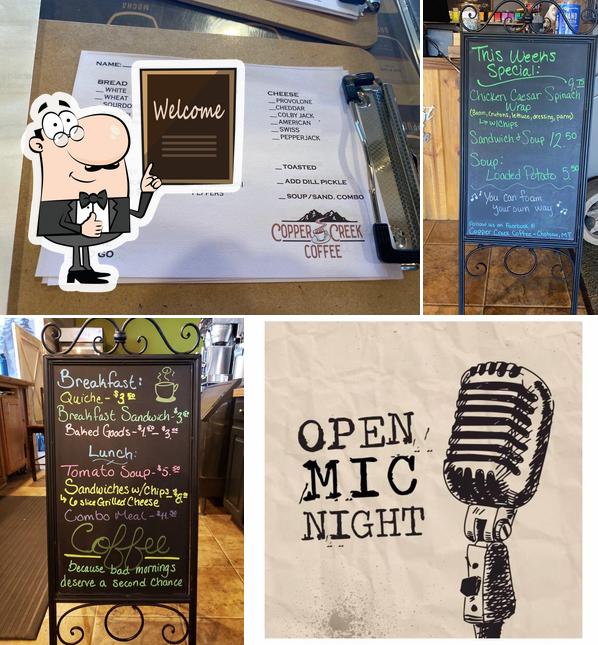 MOCHA
NAME:
BREAD
__ WHITE
__ WHEAT
__ SOURDO
PEPPERS
GO
Welcome
CHEESE
__ PROVOLONE
__ CHEDDAR
__ COLBY JACK
__ AMERICAN
__ SWISS
__ PEPPERJACK
__ TOASTED
__ ADD DILL PICKLE
__ SOUP/SAND. COMBO
COPPER CREEK
COFFEE
This Weeks
Special:
9.75
Chicken Caesar Spinach
Wrap
(Bacon, croutons, lettuce, dressing, parm)
↳ w/chips
Sandwich + Soup 12.50
Soup:
Loaded Potato 5.50
You can foam
your own way
Follow us on Facebook @
Copper Creek Coffee - Choteau, MT
Breakfast:
Quiche - $3.50
Breakfast Sandwich -
Baked Goods -
Lunch:
Tomato Soup - $5.
Sandwiches w/Chips -
↳ 6 slice Grilled Cheese
Combo Meal -
Coffee
because bad mornings
deserve a second chance
OPEN
MIC
NIGHT